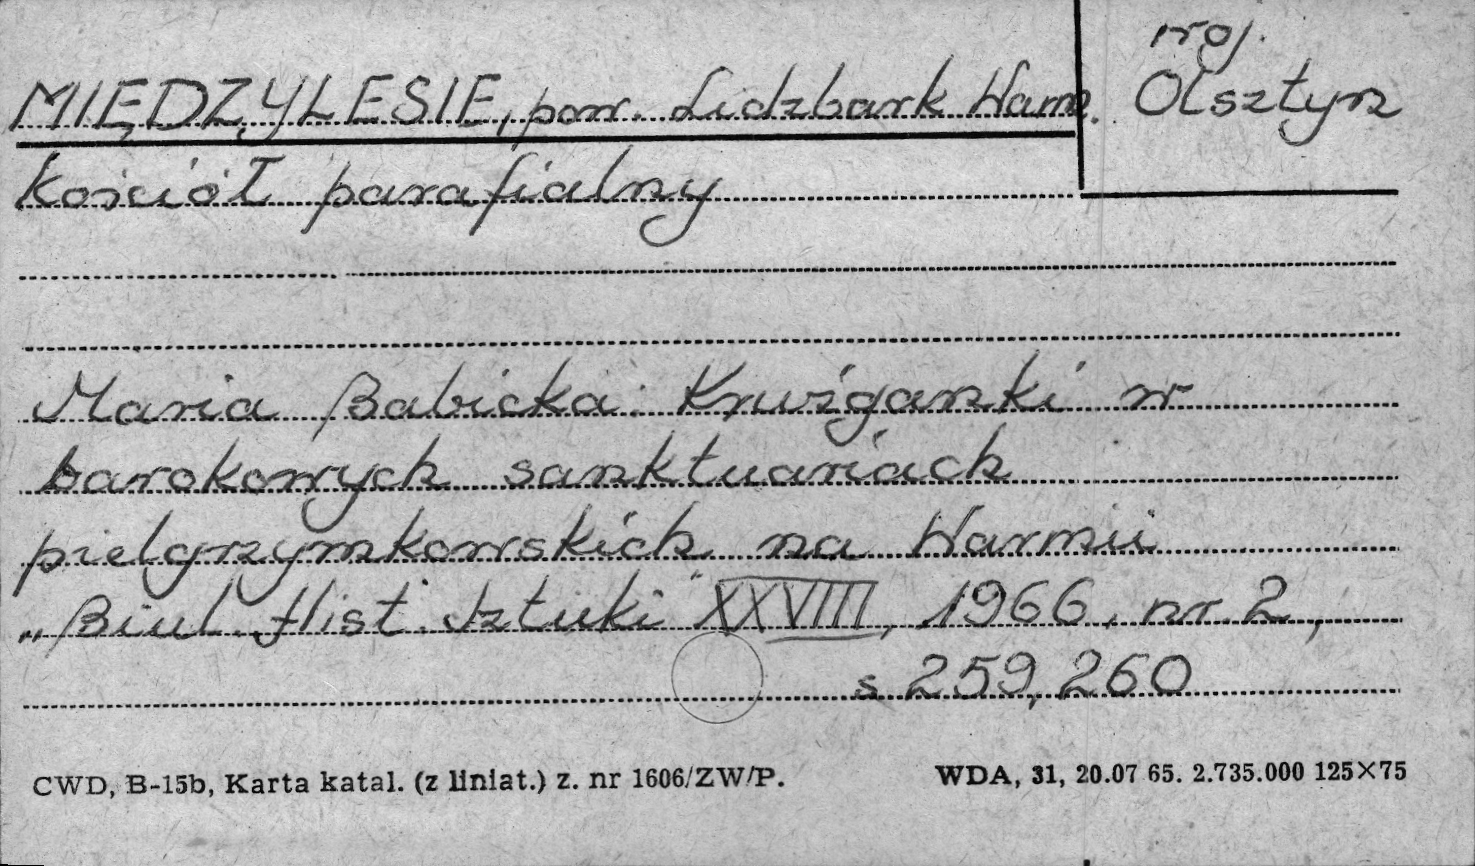 MIĘDZYLESIE, pow. Lidzbark Warm.
woj.
Olsztyn
kościół parafialny
Maria Babicka: Krużganki w
barokowych sanktuariach
pielgrzymkowskich na Warmii
„Biul. Hist. Sztuki" XXVIII, 1966, nr. 2,
s 259, 260
CWD, B-15b, Karta katal. (z liniat.) z. nr 1606/ZW/P.
WDA, 31, 20.07 65. 2.735.000 125×75